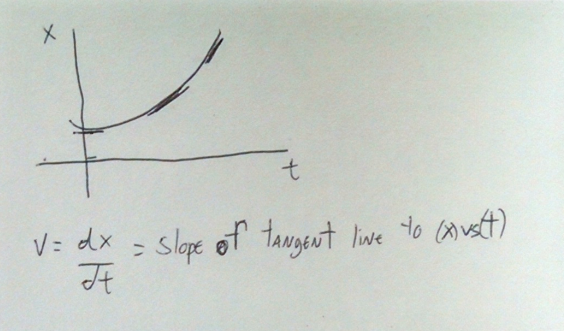 x
t
v = dx/dt = slope of tangent line to (x) vs (t)